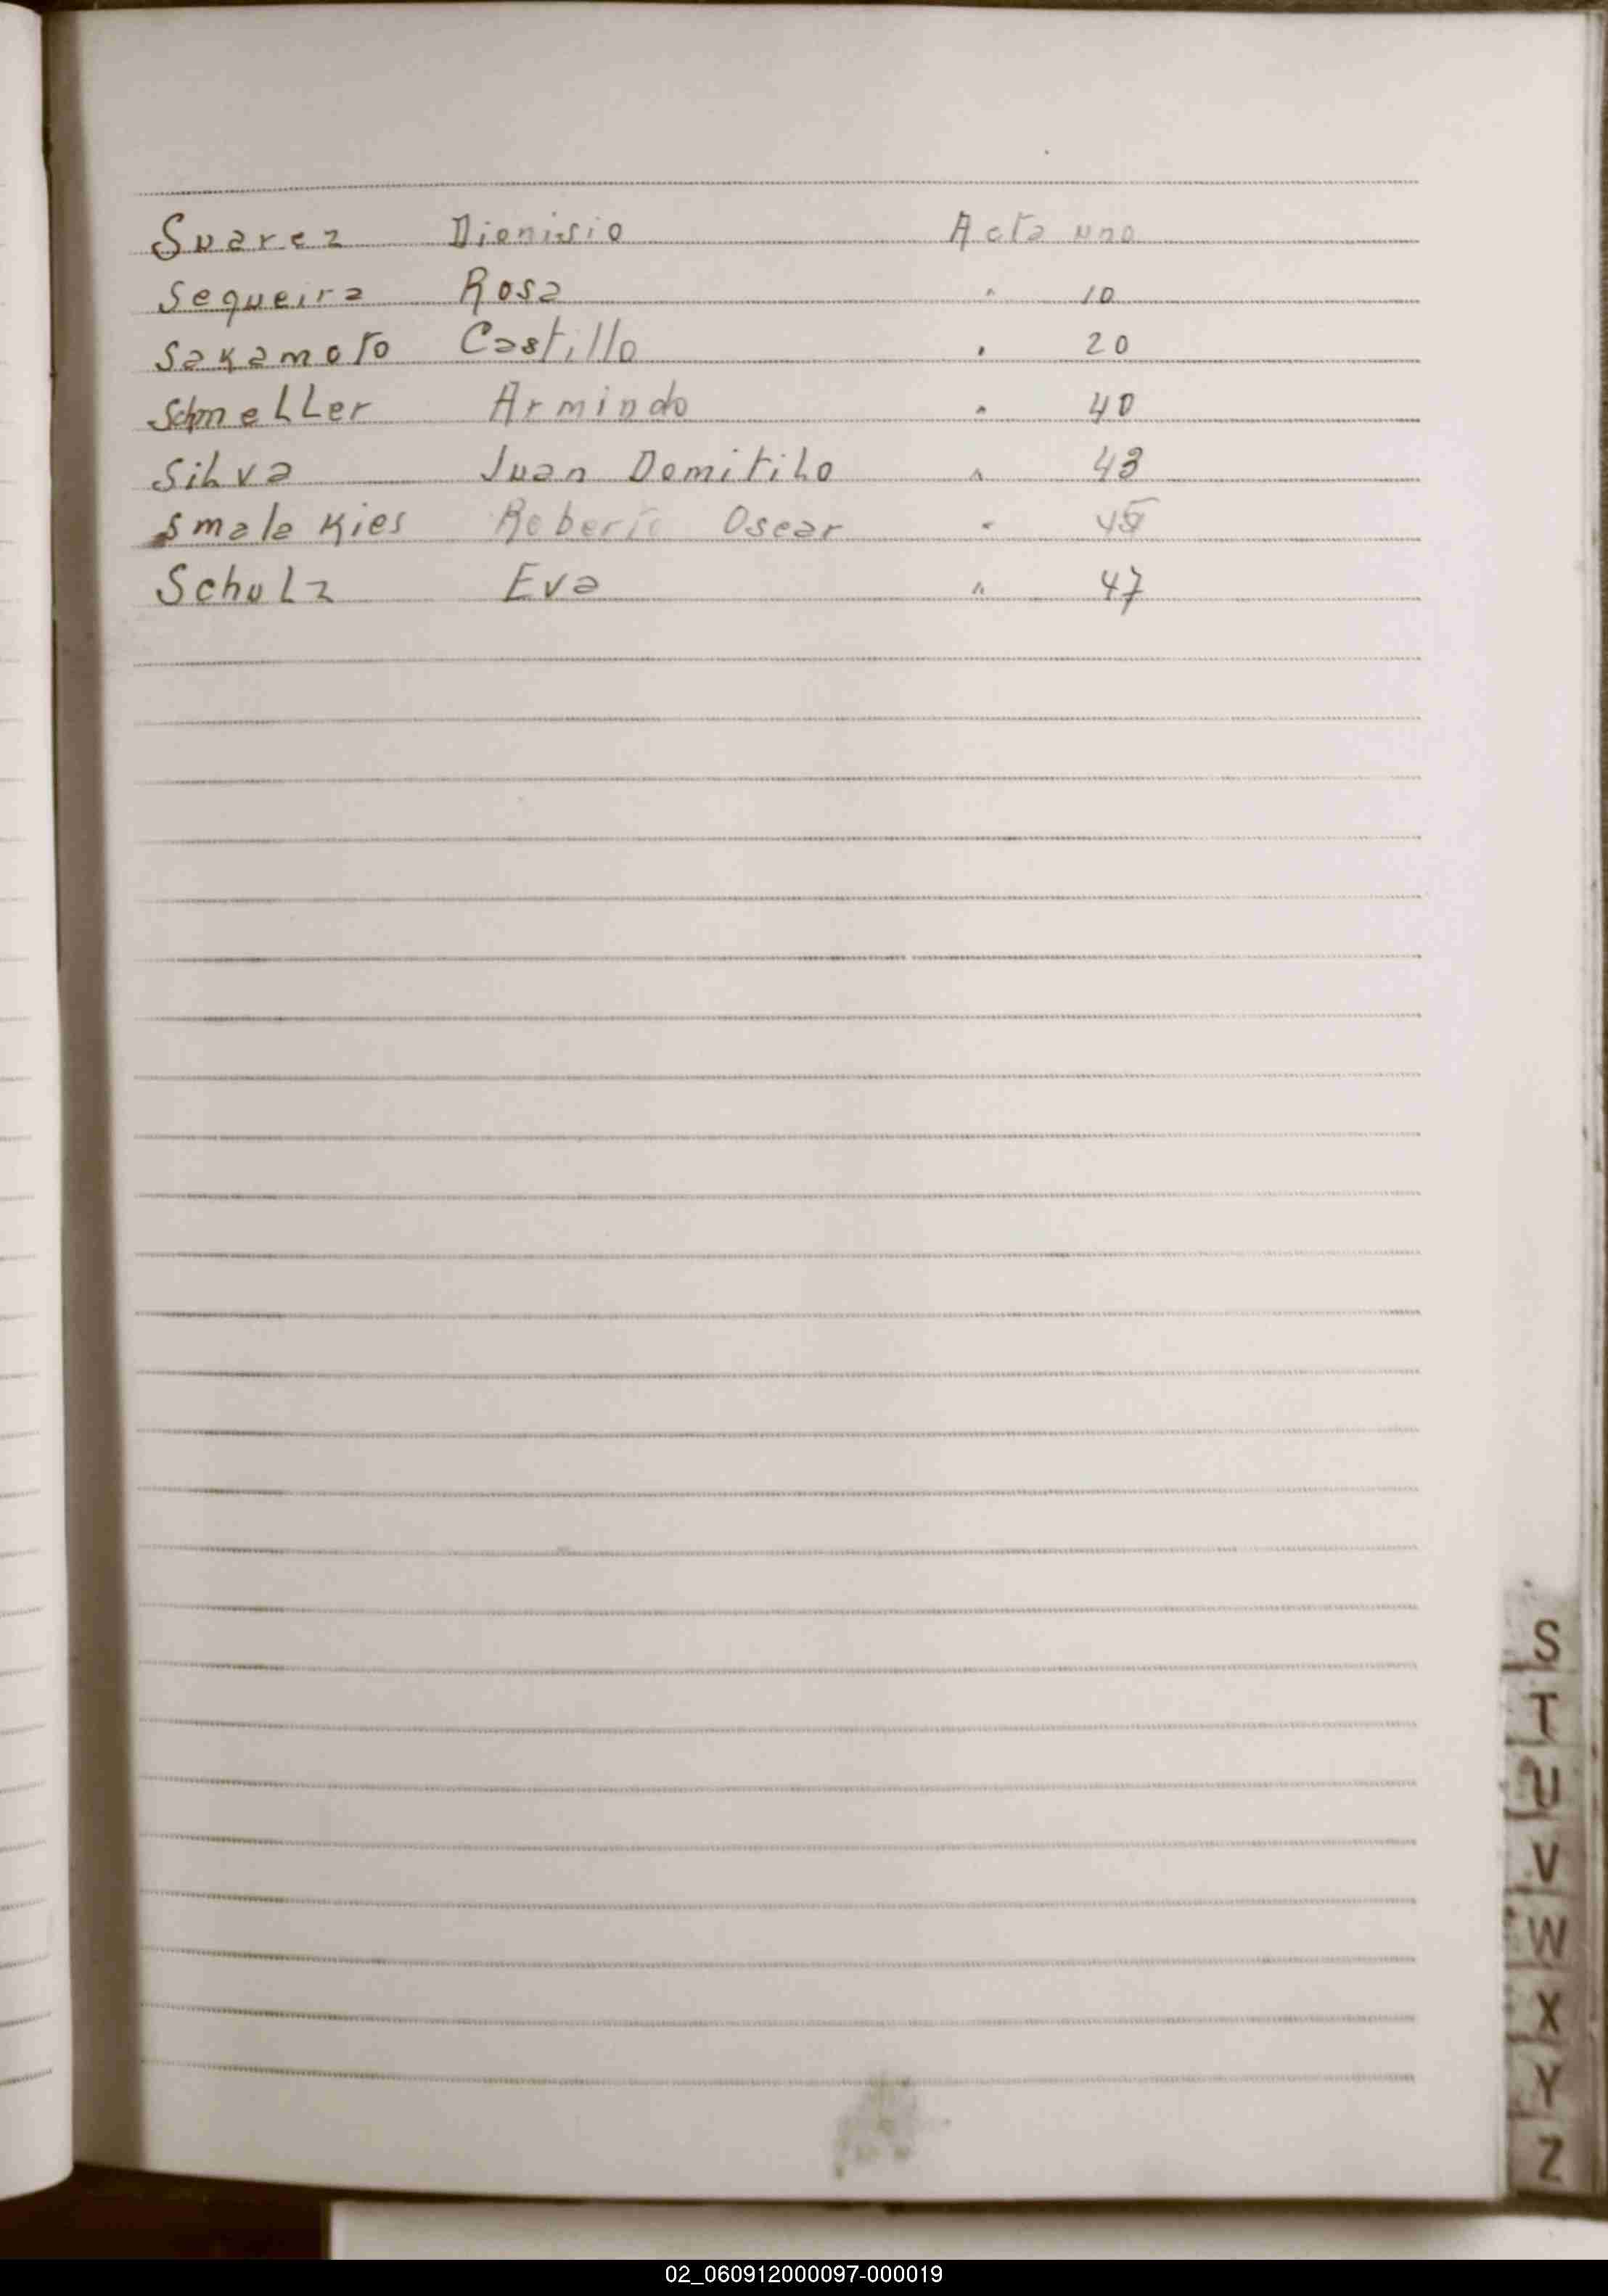 Suarez Dionisio Acta uno
Sequeira Rosa " 10
Sakamoto Castillo " 20
Schmeller Armindo " 40
Silva Juan Domitilo " 43
Smalakies Roberto Oscar "
Schulz Eva " 47
S
T
U
V
W
X
Y
Z
02_060912000097-000019